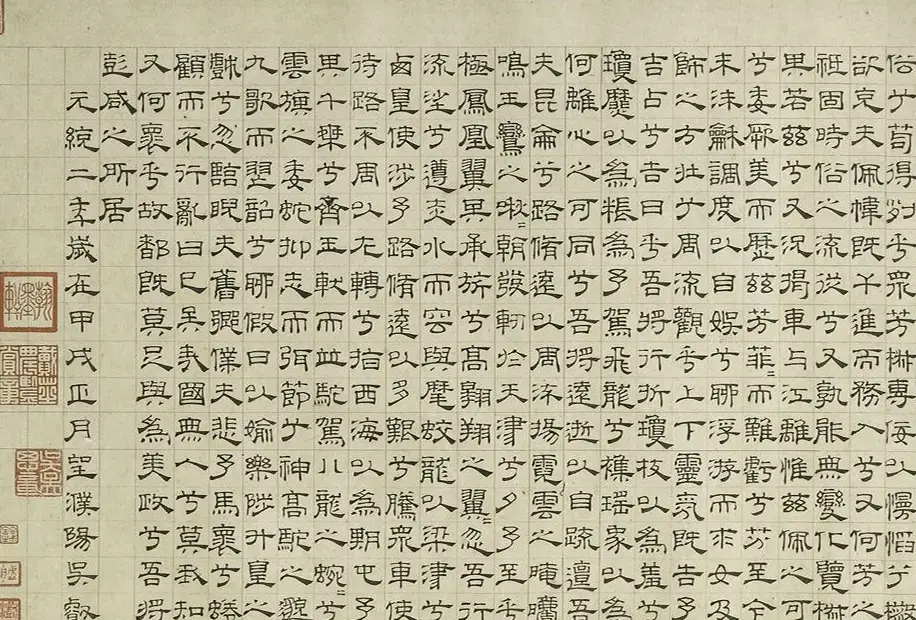 俗兮苟得列乎眾芳椒專佞以慢慆兮樧
欲充夫佩幃既干進而務入兮又何芳之
祗固時俗之流從兮又孰能無變化覽椒
其若茲兮又況揭車与江離惟茲佩之可
兮委厥美而歷茲芳菲=而難虧兮芬至今
未沬龢調度以自娛兮聊浮游而求女及
飾之方壯兮周流觀乎上下靈氛既告予
吉占兮告曰乎吾將行折瓊枝以為羞兮
瓊靡以為粻為予駕飛龍兮襍瑤象以為
何離心之可同兮吾將遠逝以自疏邅吾
夫昆侖兮路脩遠以周流揚霓雲之晻
鳴玉鸞之啾=朝發軔於天津兮夕予至乎
極鳳凰翼其承旂兮高翱翔之翼=忽吾行
流沙兮遵赤水而容與麾蛟龍以梁津兮
西皇使涉予路脩遠以多艱兮騰眾車使
待路不周以左轉兮指西海以為期屯予
其千乘兮齊玉軑而並駝駕八龍之蜿=兮
雲旗之委蛇抑志而弭節兮神高駝之邈
九歌而舞韶兮聊假日以媮樂陟升皇之
戲兮忽臨睨夫舊鄉僕夫悲予馬懷兮蜷
顧而不行亂曰已矣國無人兮莫我知
又何懷乎故都既莫足與為美政兮吾將
彭咸之所居
元統二年歲在甲戌正月望濮陽吳叡